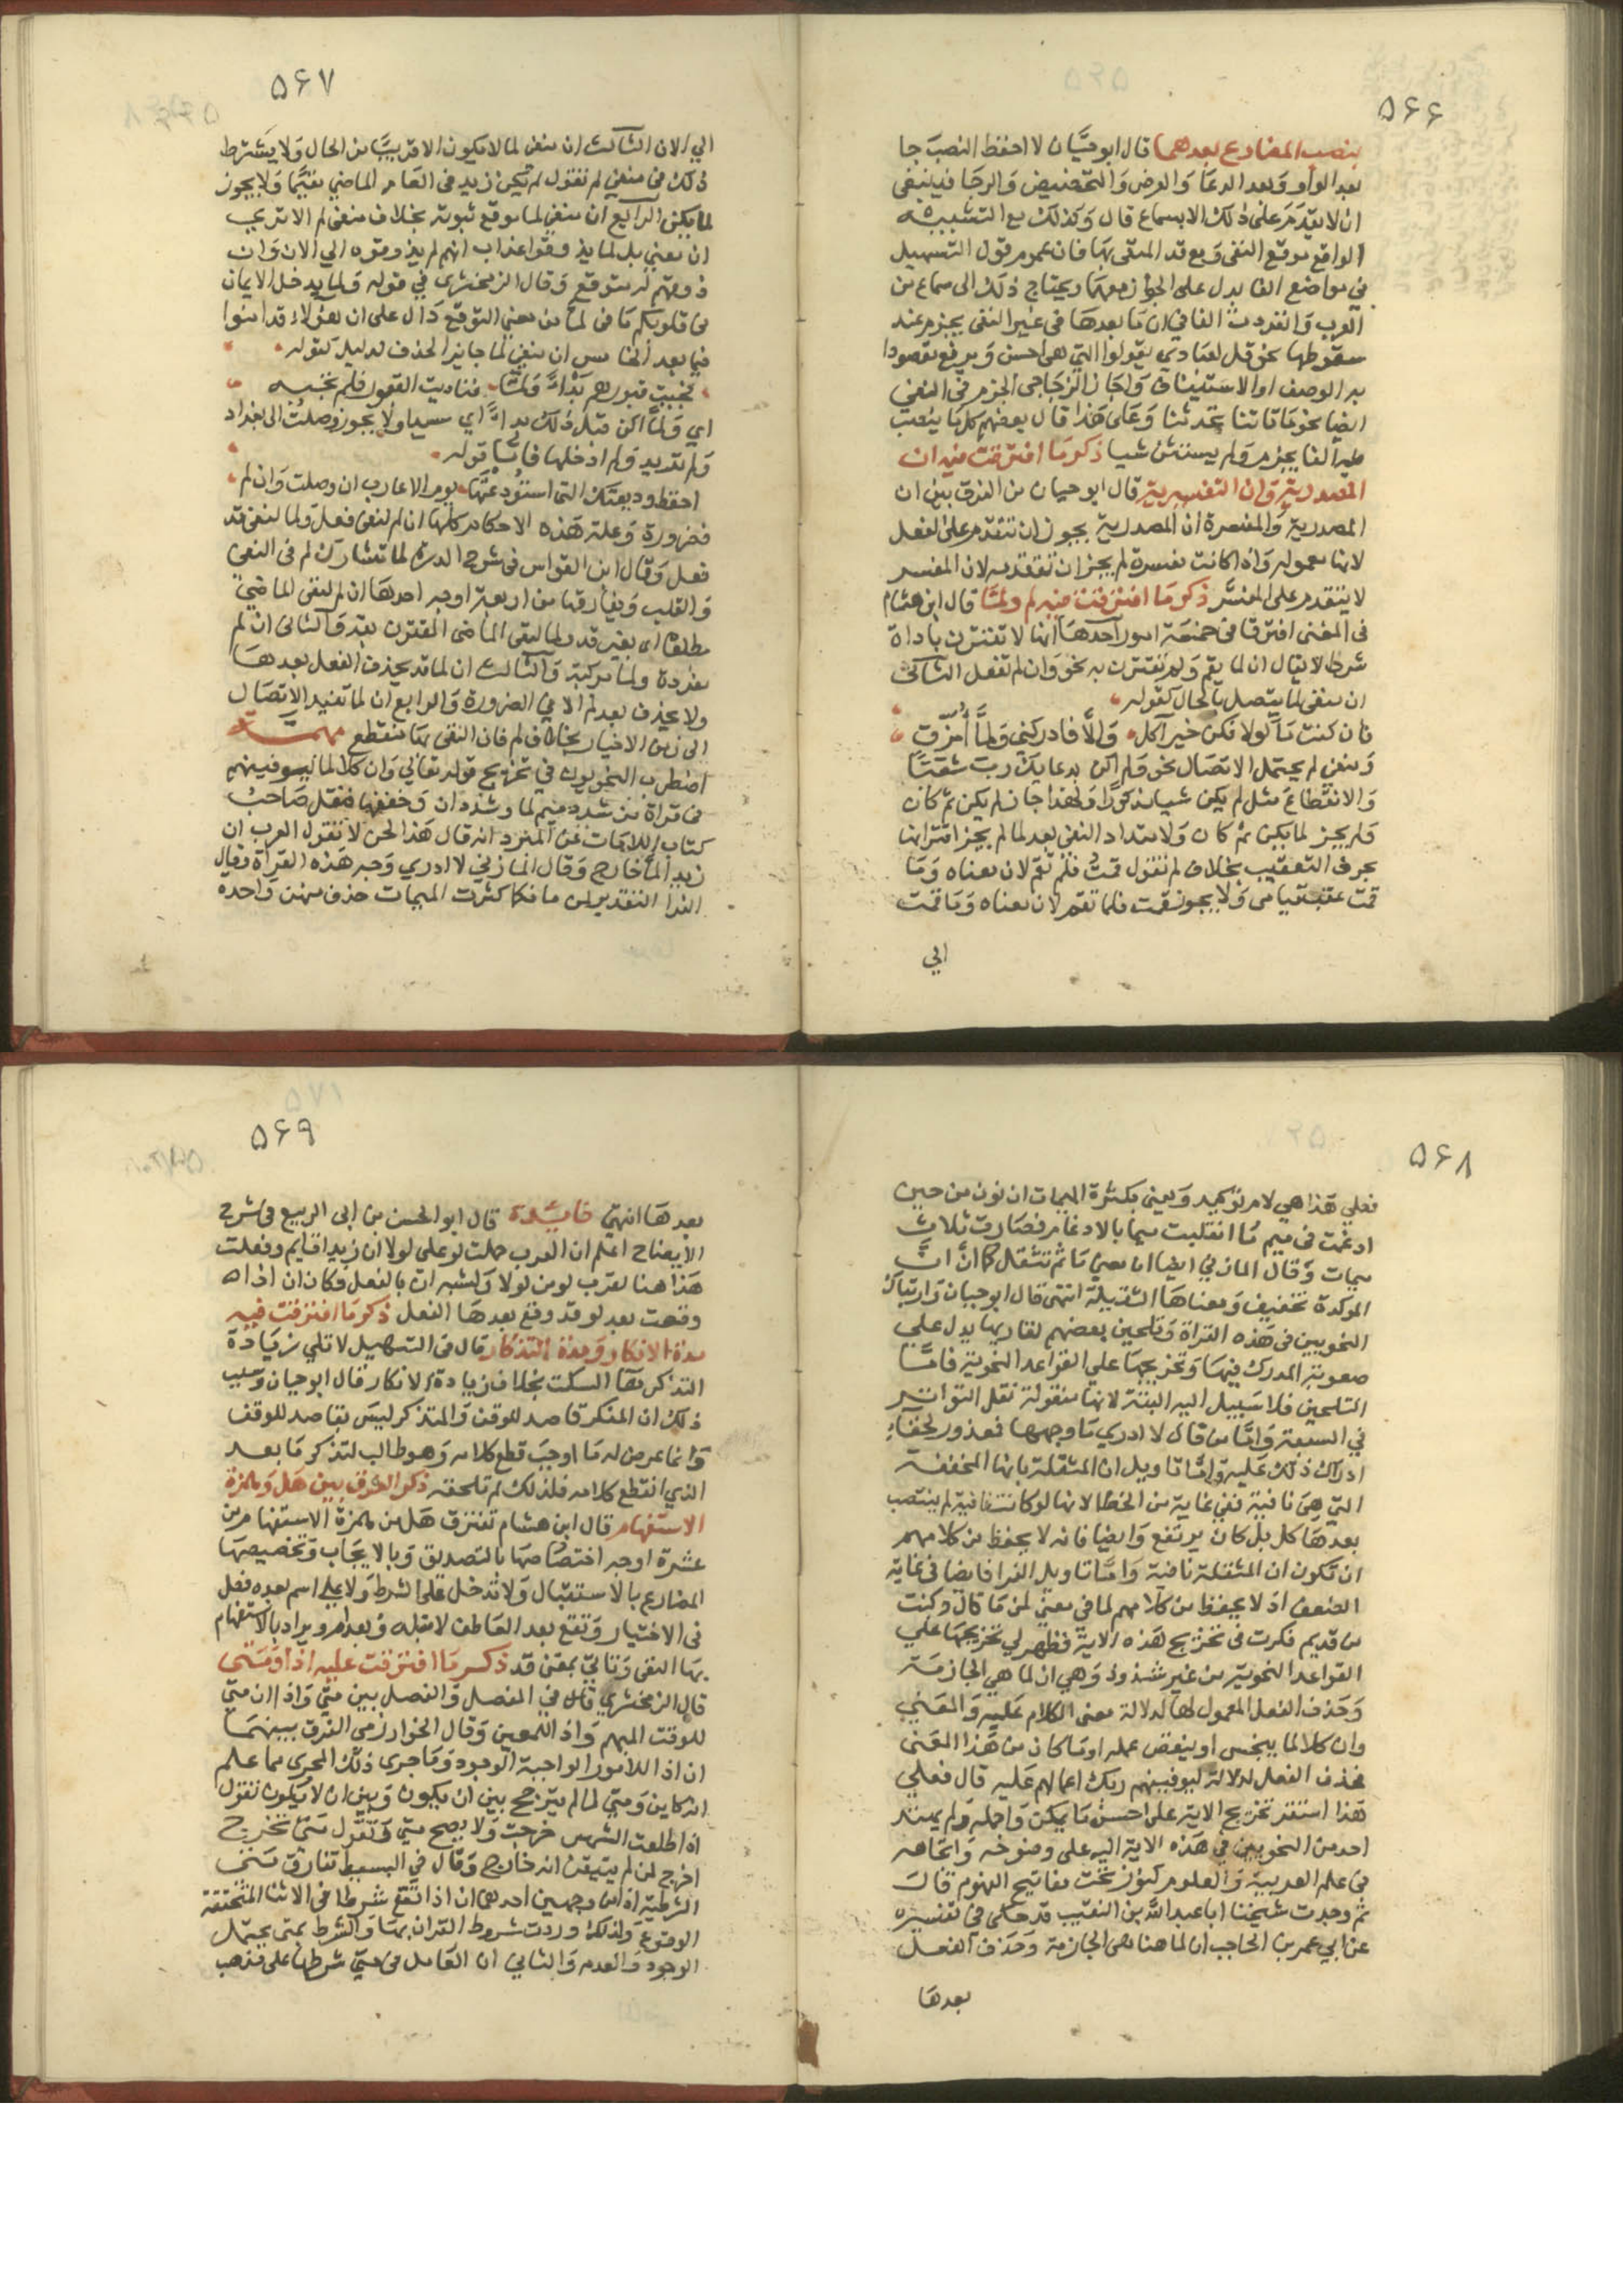 ٥٦٦
ينصب المضارع بعدهما قال ابو حيان لا احفظ النصب جا
بعد الواو وبعد الدعا والعرض والتحضيض والرجا فينبغى
ان لا يقدم على ذلك الا بسماع قال وكذلك مع التشبيه
الواقع موقع النفى ومع قد المنفى بها فان عموم قول التسهيل
فى مواضع الفا يدل على الجواز معهما ويحتاج ذلك الى سماع من
العرب وانفردت الفا فى ان ما بعدها فى غير النفى يجزم عند
سقوطها نحو قل لعبادي يقولوا التي هى احسن ويرفع مقصودا
به الوصف او الاستيناف واجاز الزجاجى الجزم فى النفى
ايضا نحو ما تاتنا تحدثنا وعلى هذا قال بعضهم كل ما ينصب
فيه الفا يجزم ولم يستثن شيا ذكر ما افترقت فيه ان
المصدرية وان التفسيرية قال ابو حيان من الفرق بين ان
المصدرية والمفسرة ان المصدرية يجوز ان تتقدم على الفعل
لانها معموله واذا كانت مفسرة لم يجز ان تتقدمه لان المفسر
لا يتقدم على المفسر ذكر ما افترقت فيه لم ولما قال ابن هشام
فى المغنى افترقا فى خمسة امور احدها انها لا تقترن باداة
شرط لا يقال ان لما يقم ولم تقترن به نحو وان لم تفعل الثانى
ان منفى لما يتصل بالحال كقوله
فان كنت ماكولا فكن خير آكل والا فادركني ولما أمزق
ومنفى لم يحتمل الاتصال نحو ولم اكن بدعايك رب شقيا
والانقطاع مثل لم يكن شيا مذكورا ولهذا جاز لم يكن ثم كان
ولم يجز لما يكن ثم كان ولامتداد النفى بعد لما لم يجز اقترانها
بحرف التعقيب بخلاف لم تقول قمت فلم تقم لان معناه وما
قمت عقب قيامى ولا يجوز قمت فلما تقم لان معناه وما قمت
الي
٥٦٧
الي الان الثالث ان منفى لما لا يكون الا قريبا من الحال ولا يشترط
ذلك فى منفى لم تقول لم يكن زيد فى العام الماضي مقيما ولا يجوز
لما يكن الرابع ان منفى لما موقع ثبوته بخلاف منفى لم الا ترى
ان معنى بل لما يذوقوا عذاب انهم لم يذوقوه الي الان وان
ذوقهم له متوقع وقال الزمخشرى في قوله ولما يدخل الايمان
فى قلوبكم ما فى لما من معنى التوقع دال على ان هؤلاء قد امنوا
فيما بعد الخامس ان منفى لما جايز الحذف لدليل كقوله
فجيت قبورهم بدأ ولما فناديت القبور فلم تجبه
اى ولما اكن قبل ذلك بدأ اي سيدا ولا يجوز وصلت الى بغداد
ولم تريد ولم ادخلها فاما قوله
احفظ وديعتك التى استودعتها يوم الاعارب ان وصلت وان لم
فضرورة وعلة هذه الاحكام كلها ان لم لنفى فعل ولما لنفى قد
فعل وقال ابن القواس فى شرح الدرة لما تشارك لم فى النفى
والقلب ويفارقها من اربعة اوجه احدها ان لم لنفى الماضي
مطلقا اى بغير قد ولما لنفى الماضى المقترن بقد والثانى ان لم
مفردة ولما مركبة والثالث ان لما قد يحذف الفعل بعدها
ولا يحذف بعد لم الا في الضرورة والرابع ان لما تفيد الاتصال
الى زمن الاخبار بخلاف لم فان النفى بها منقطع مهمة
اضطرب النحويون في تخريج قوله تعالي وان كلا لما ليوفينهم
فى قراة من شدد ميم لما وشدد ان وخففها فنقل صاحب
كتاب اللامات عن المبرد انه قال هذا لحن لا تقول العرب ان
زيدا لما خارج وقال المازني لا ادري وجه هذه القراة وقال
الفرا التقدير لمن ما فلما كثرت الميمات حذف منهن واحدة
٥٦٨
فعلي هذا هي لام توكيد ويعني بكثرة الميمات ان نون من حين
ادغمت فى ميم ما انقلبت ميما بالادغام فصارت ثلاث
ميمات وقال المازني ايضا ان بمعني ما ثم تثقل كما ان ان
الموكدة تخفف ومعناها الثقيلة انتهى قال ابو حيان وارتباك
النحويين فى هذه القراة وتلحين بعضهم لقاريها يدل على
صعوبة المدرك فيها وتخريجها على القواعد النحوية فاما
التلحين فلا سبيل اليه البتة لانها منقولة نقل التواتر
في السبعة واما من قال لا ادري ما وجهها فمعذور لخفاء
ادراك ذلك عليه واما تاويل ان المثقلة بانها المخففة
التي هى نافية ففي غاية من الخطا لانها لو كانت نافية لم ينتصب
بعدها كل بل كان يرتفع وايضا فانه لا يحفظ من كلامهم
ان تكون ان المثقلة نافية واما تاويل الفرا فايضا فى غاية
الضعف اذ لا يحفظ من كلامهم لما في معني لمن ما قال وكنت
من قديم فكرت فى تخريج هذه الاية فظهر لي تخريجها علي
القواعد النحوية من غير شذوذ وهي ان لما هي الجازمة
وحذف الفعل المعمول لها لدلالة معنى الكلام عليه والمعني
وان كلا لما ينجس او ينقص عمله او ما كان من هذا المعنى
فحذف الفعل لدلالة ليوفينهم ربك اعمالهم عليه قال فعلي
هذا استقر تخريج الاية على احسن ما يمكن واجمله ولم يهتد
احد من النحويين في هذه الاية اليه على وضوحه واتجاهه
فى علم العربية والعلوم كنوز تحت مفاتيح الفهوم قال
ثم وجدت شيخنا ابا عبد الله بن النقيب قد حكى في تفسيره
عن ابي عمر بن الحاجب ان لما هنا هى الجازمة وحذف الفعل
بعدها
٥٦٩
بعدها انتهى فايدة قال ابو الحسن بن ابى الربيع فى شرح
الايضاح اعلم ان العرب حملت لو على لولا ان زيدا قايم وفعلت
هذا هنا لقرب لو من لولا ولشبه ان بالفعل فكان ان اذا
وقعت بعد لو قد وقع بعدها الفعل ذكر ما افترقت فيه
مدة الانكار ومدة التذكار قال فى التسهيل لا تلي زيادة
التذكر ها السكت بخلاف زيادة الانكار قال ابو حيان وسبب
ذلك ان المنكر قاصد للوقف والمتذكر ليس بقاصد للوقف
وانما عرض له ما اوجب قطع كلامه وهو طالب لتذكر ما بعد
الذي انقطع كلامه فلذلك لم تلحقه ذكر الفرق بين هل وهمزة
الاستفهام قال ابن هشام تفترق هل من همزة الاستفهام من
عشرة اوجه اختصاصها بالتصديق وبالايجاب وتخصيصها
المضارع بالاستقبال ولا تدخل على الشرط ولا على اسم بعده فعل
فى الاختيار وتقع بعد العاطف لا قبله وبعد ام ويراد بالاستفهام
بها النفى وتاتي بمعنى قد ذكر ما افترقت عليه اذا ومتى
قال الزمخشري قال في المفصل والفصل بين متي واذا ان متي
للوقت المبهم واذا للمعين وقال الخوارزمى الفرق بينهما
ان اذا للامور الواجبة الوجود وما جرى ذلك المجرى مما علم
انه كاين ومتي لما لم يترجح بين ان يكون وبين ان لا يكون تقول
اذا طلعت الشمس خرجت ولا يصح متي وتقول متى تخرج
اخرج لمن لم يتيقن انه خارج وقال في البسيط تفارق متى
الشرطية اذا من وجهين احدهما ان اذا تقع شرطا فى الاشيا المتحققة
الوقوع ولذلك وردت شروط القران بها والشرط بمتى يحتمل
الوجود والعدم والثاني ان العامل فى متي شرطها على مذهب